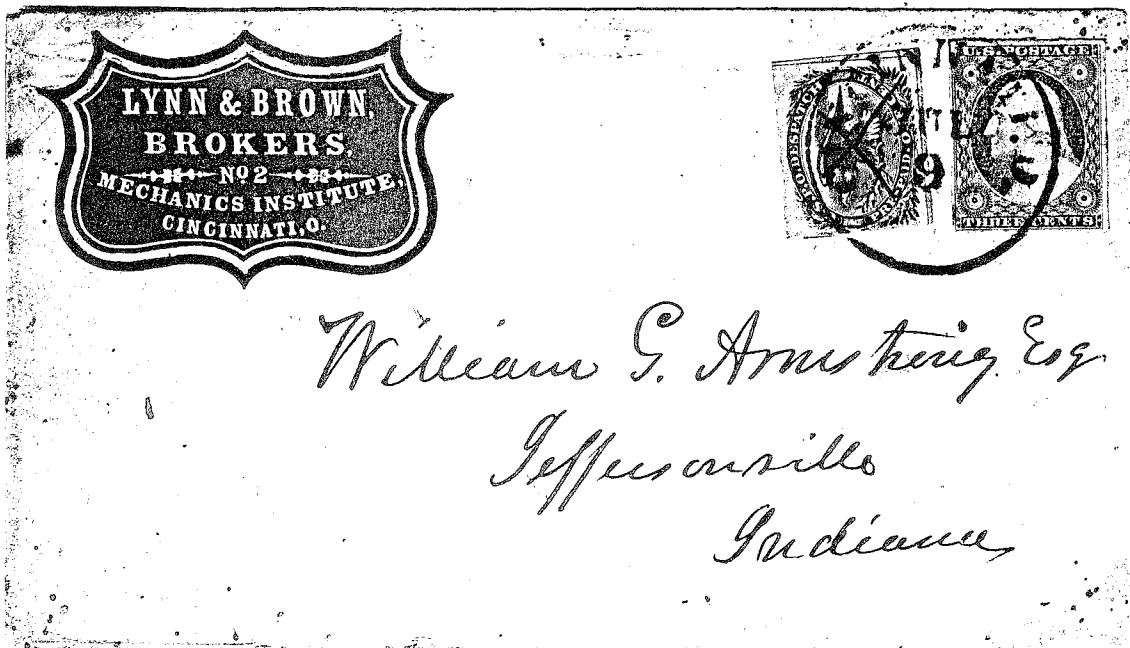 LYNN & BROWN,
BROKERS,
No 2
MECHANICS INSTITUTE,
CINCINNATI, O.
U.S.P.O. DESPATCH
PRE-PAID ONE CENT
9
U.S. POSTAGE
THREE CENTS
William G. Armstrong Esq
Jeffersonville
Indiana